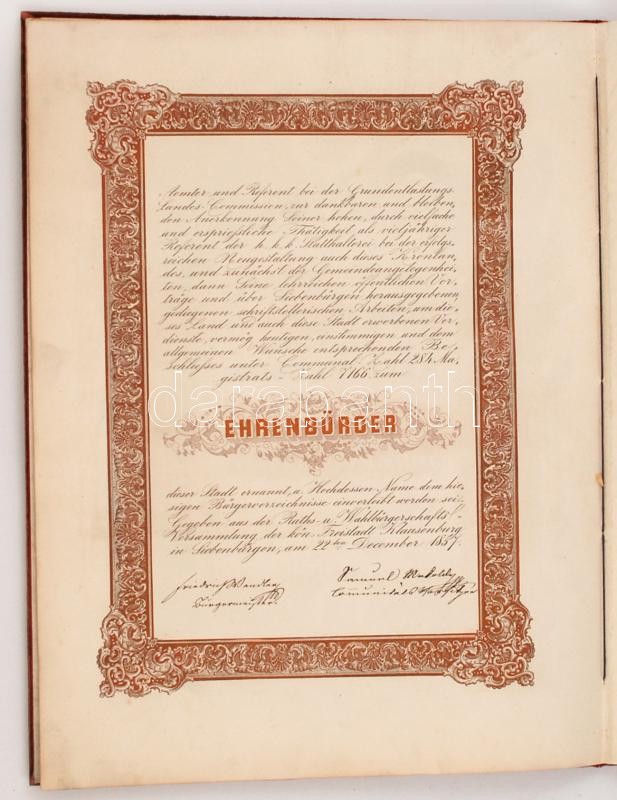 Aemter und Referent bei der Grundentlastungs-
Landes-Commission, zur dankbaren und bleiben,
den Anerkennung Seiner hohen, durch vielfache
und erspriesliche Thätigkeit als vieljähriger
Referent der h. k. k. Statthalterei bei der erfolgs,
reichen Neugestaltung auch dieses Kronlan,
des, und zunächst der Gemeindeangelegenhei,
ten, dann Seine lehrreichen öffentlichen Vor,
träge und über Siebenbürgen herausgegebenen
gediegenen schriftstellerischen Arbeiten, um die,
ses Land und auch diese Stadt erworbenen Ver,
dienste, vermög heutigen, einstimmigen und dem
allgemeinen Wunsche entsprechenden Be,
schlusses unter Communal-Zahl 284 Ma,
gistrats-Zahl 7166 zum
EHRENBÜRGER
dieser Stadt ernannt, u. Hochdessen Name dem hie,
sigen Bürgerverzeichnisse einverleibt worden sei.
Gegeben aus der Raths- u. Wahlbürgerschafts-
Versammlung der kön. Freistadt Klausenburg
in Siebenbürgen, am 22ten December 1857.
Friedrich Wendler
Bürgermeister.
Samuel
Comunitäts
darabanth